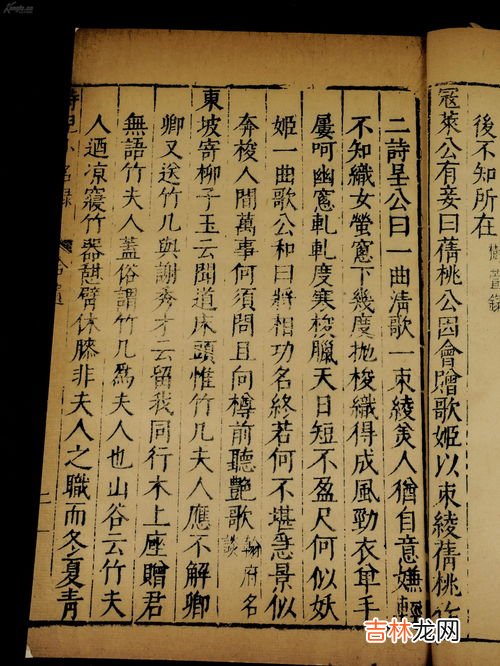 後不知所在
寇萊公有妾曰蒨桃公因會贈歌姬以束綾蒨桃作
二詩呈公曰一曲清歌一束綾美人猶自意嫌輕
不知織女螢窻下幾度拋梭織得成風勁衣單手
屢呵幽窻軋軋度寒梭臘天日短不盈尺何似妖
姬一曲歌公和曰將相功名終若何不堪急景似
奔梭人間萬事何須問且向樽前聽艷歌翰府名談
東坡寄柳子玉云聞道床頭惟竹几夫人應不解卿
卿又送竹几與謝秀才云留我同行木上座贈君
無語竹夫人蓋俗謂竹几爲夫人也山谷云竹夫
人迺凉寢竹器憩臂休膝非夫人之職而冬夏青
侍兒小名錄
二
Kongfz.cn
吉林龙网